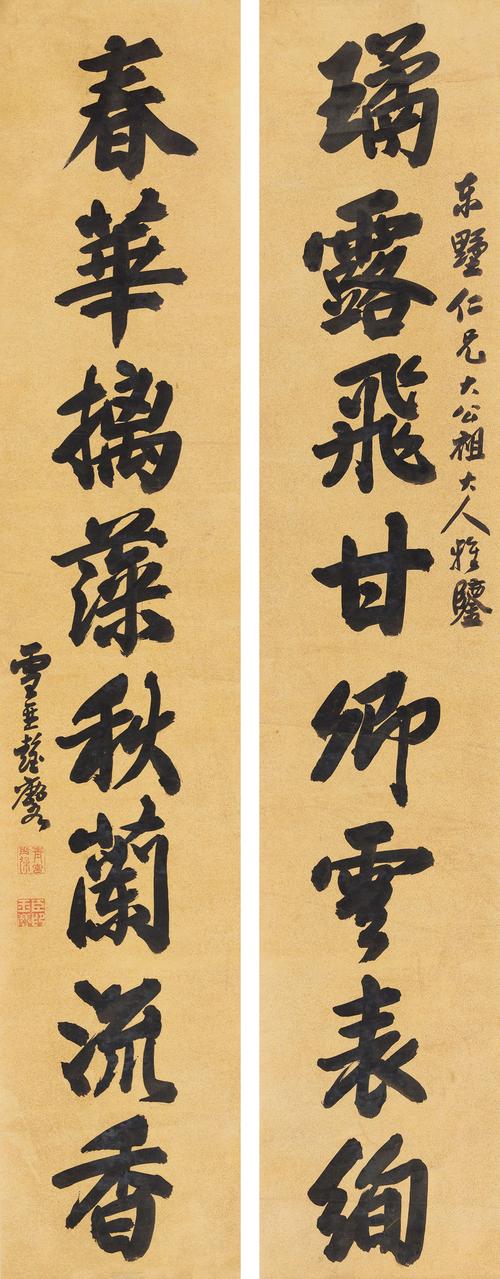 璚露飛甘卿雲表絢
東墅仁兄大公祖大人雅鑒
春華摛藻秋蘭流香
雪琴彭玉麐